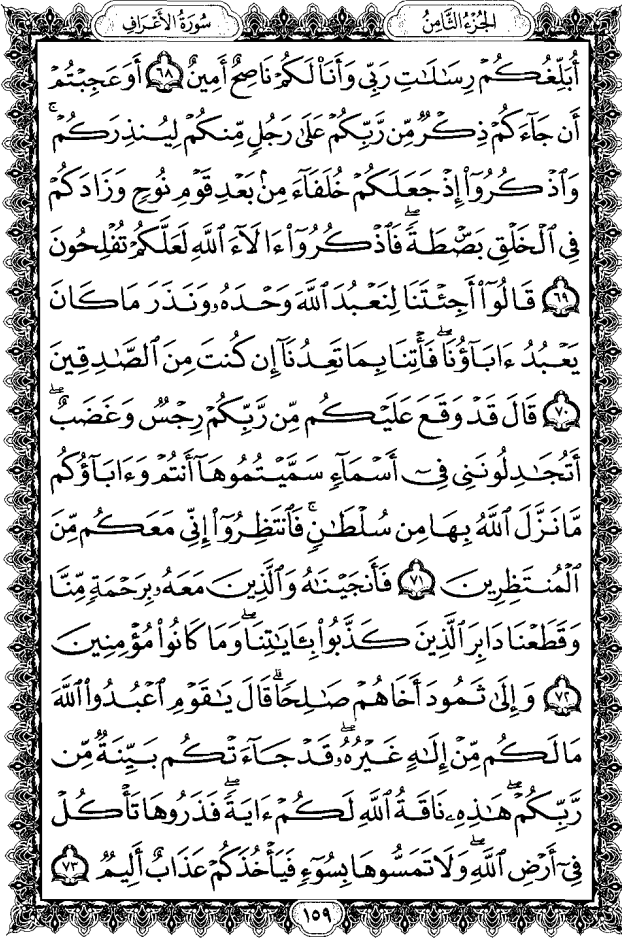 الجُزْءُ الثَّامِنُ
سُورَةُ الأَعْرَافِ
أُبَلِّغُكُمْ رِسَٰلَٰتِ رَبِّى وَأَنَا۠ لَكُمْ نَاصِحٌ أَمِينٌ ٦٨ أَوَعَجِبْتُمْ
أَن جَآءَكُمْ ذِكْرٌ مِّن رَّبِّكُمْ عَلَىٰ رَجُلٍ مِّنكُمْ لِيُنذِرَكُمْ ۚ
وَٱذْكُرُوٓا۟ إِذْ جَعَلَكُمْ خُلَفَآءَ مِنۢ بَعْدِ قَوْمِ نُوحٍ وَزَادَكُمْ
فِى ٱلْخَلْقِ بَصْۜطَةً ۖ فَٱذْكُرُوٓا۟ ءَالَآءَ ٱللَّهِ لَعَلَّكُمْ تُفْلِحُونَ
٦٩ قَالُوٓا۟ أَجِئْتَنَا لِنَعْبُدَ ٱللَّهَ وَحْدَهُۥ وَنَذَرَ مَا كَانَ
يَعْبُدُ ءَابَآؤُنَا ۖ فَأْتِنَا بِمَا تَعِدُنَآ إِن كُنتَ مِنَ ٱلصَّٰدِقِينَ
٧٠ قَالَ قَدْ وَقَعَ عَلَيْكُم مِّن رَّبِّكُمْ رِجْسٌ وَغَضَبٌ ۖ
أَتُجَٰدِلُونَنِى فِىٓ أَسْمَآءٍ سَمَّيْتُمُوهَآ أَنتُمْ وَءَابَآؤُكُم
مَّا نَزَّلَ ٱللَّهُ بِهَا مِن سُلْطَٰنٍ ۚ فَٱنتَظِرُوٓا۟ إِنِّى مَعَكُم مِّنَ
ٱلْمُنتَظِرِينَ ٧١ فَأَنجَيْنَٰهُ وَٱلَّذِينَ مَعَهُۥ بِرَحْمَةٍ مِّنَّا
وَقَطَعْنَا دَابِرَ ٱلَّذِينَ كَذَّبُوا۟ بِـَٔايَٰتِنَا ۖ وَمَا كَانُوا۟ مُؤْمِنِينَ
٧٢ وَإِلَىٰ ثَمُودَ أَخَاهُمْ صَٰلِحًا ۗ قَالَ يَٰقَوْمِ ٱعْبُدُوا۟ ٱللَّهَ
مَا لَكُم مِّنْ إِلَٰهٍ غَيْرُهُۥ ۖ قَدْ جَآءَتْكُم بَيِّنَةٌ مِّن
رَّبِّكُمْ ۖ هَٰذِهِۦ نَاقَةُ ٱللَّهِ لَكُمْ ءَايَةً ۖ فَذَرُوهَا تَأْكُلْ
فِىٓ أَرْضِ ٱللَّهِ ۖ وَلَا تَمَسُّوهَا بِسُوٓءٍ فَيَأْخُذَكُمْ عَذَابٌ أَلِيمٌ ٧٣
١٥٩